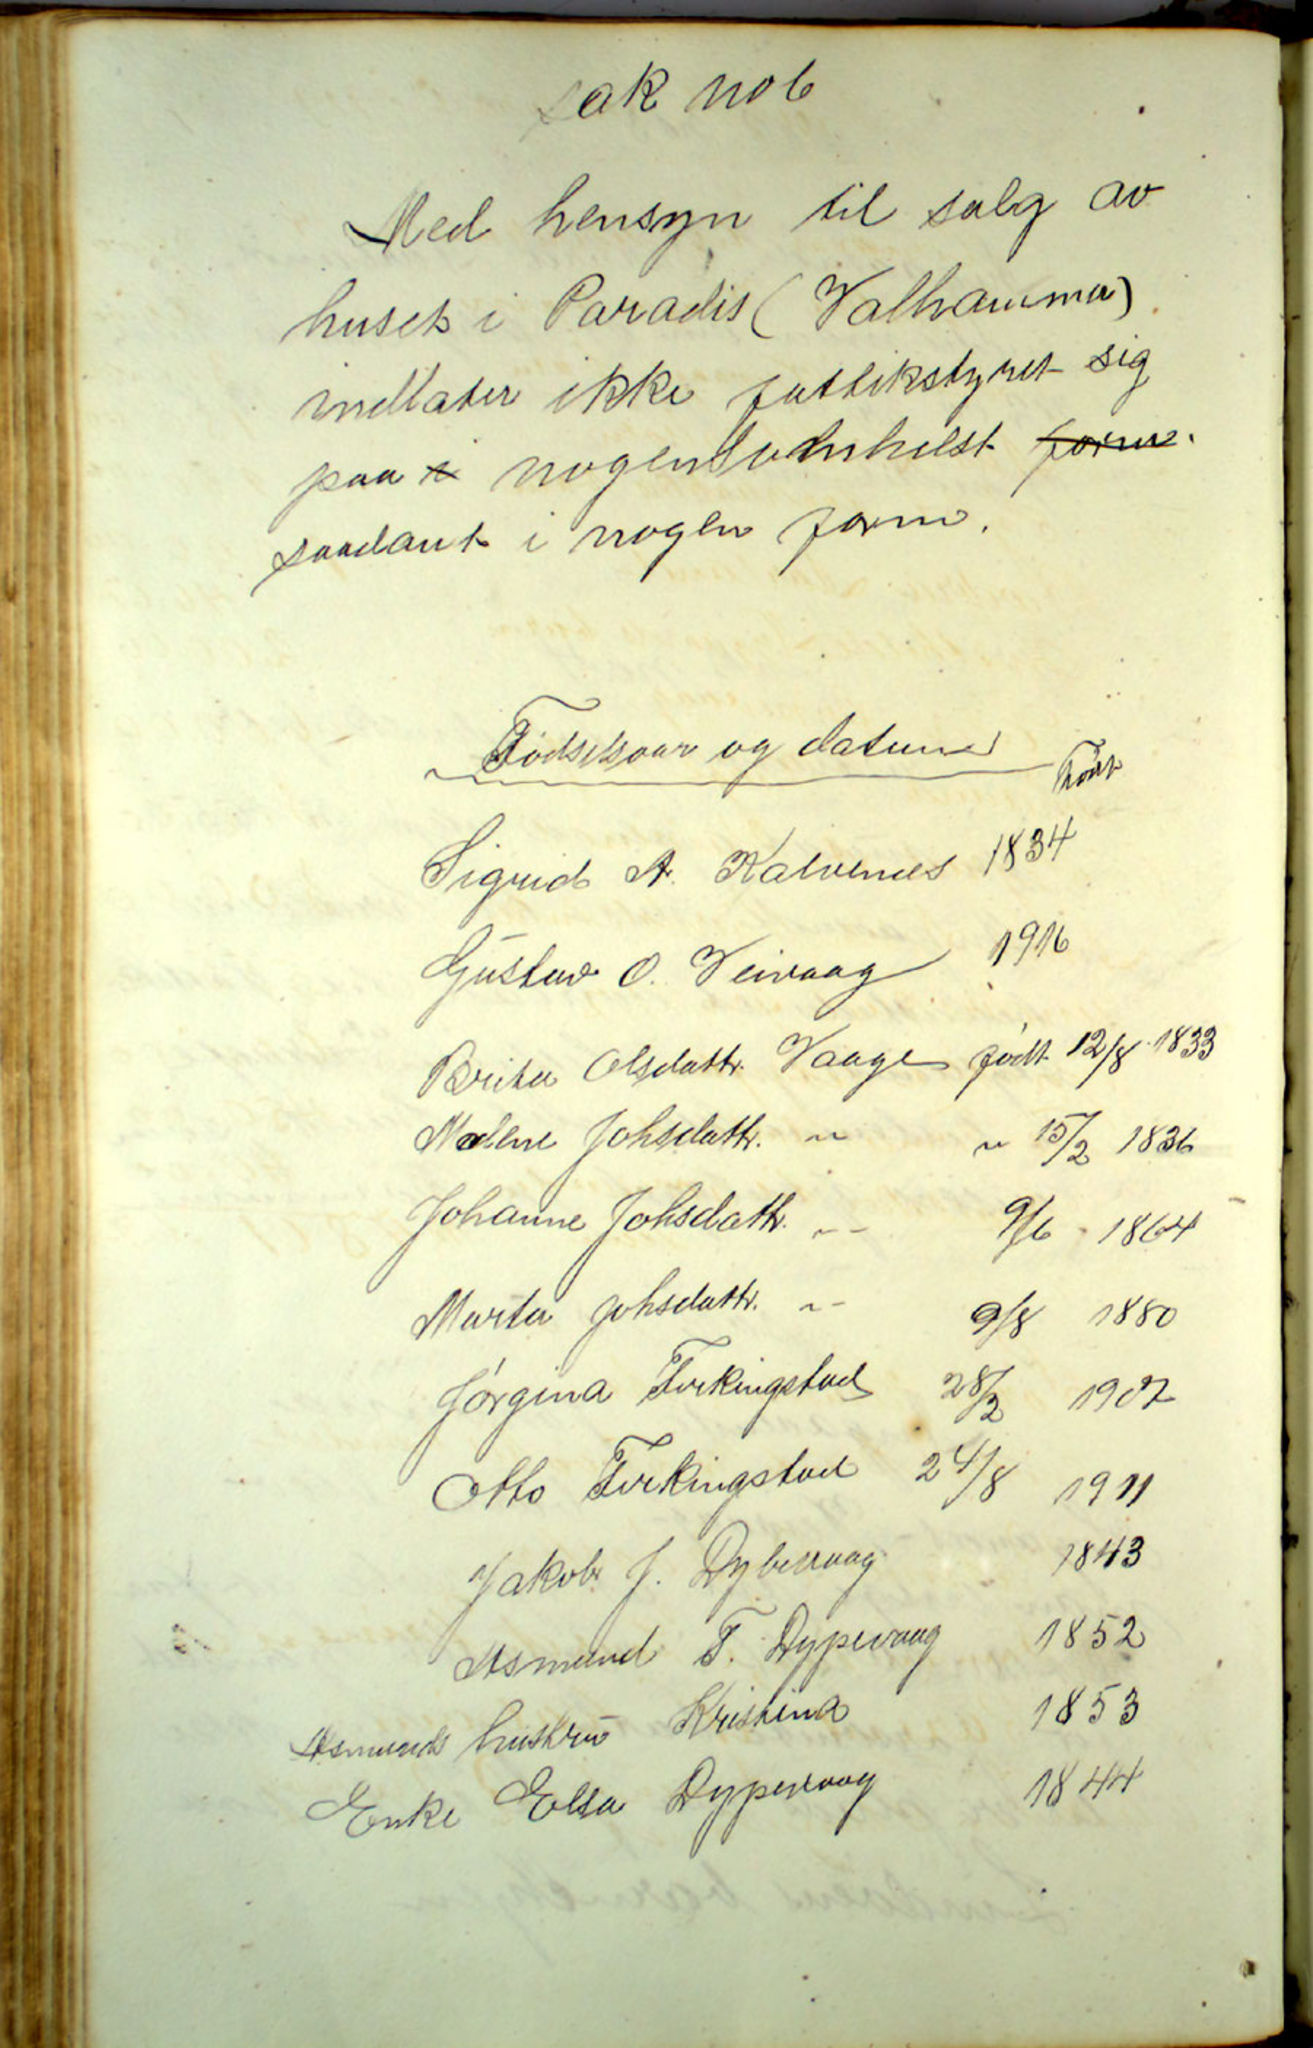 sak no 6
Med hensyn til salg av
huset i Paradis (Valhammer)
indlater ikke fattikstyret sig
paa i nogensomhelst form.
saadant i nogen form.
Fødselsaar og datum
Født
Sigrid A. Kalvenes 1834
Gustav O. Veivaag 1916
Brita Olsdattr. Vaage født 12/8 1833
Malene Johsdattr. " " 15/2 1836
Johanne Johsdattr. " 9/6 - 1864
Marta Johsdattr. " 9/8 1880
Jørgina Førkingstad 28/2 1902
Otto Førkingstad 24/8 1911
Jakob J. Dybevaag 1843
Asmund T. Dypevaag 1852
Asmunds hustru Kristina 1853
Enke Elsa Dypevaag 1844